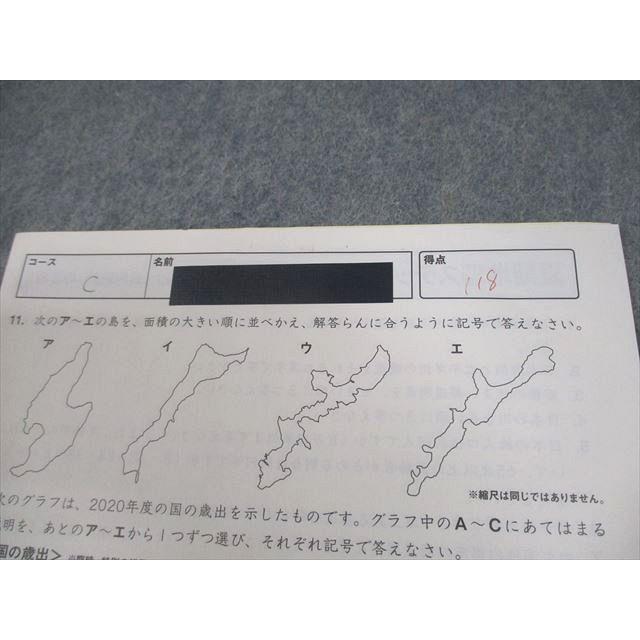 コース
C
名前
得点
118
11. 次のア～エの島を、面積の大きい順に並べかえ、解答らんに合うように記号で答えなさい。
ア イ ウ エ
※縮尺は同じではありません。
次のグラフは、2020年度の国の歳出を示したものです。グラフ中のA～Cにあてはまる
明を、あとのア～エから1つずつ選び、それぞれ記号で答えなさい。
国の歳出＞